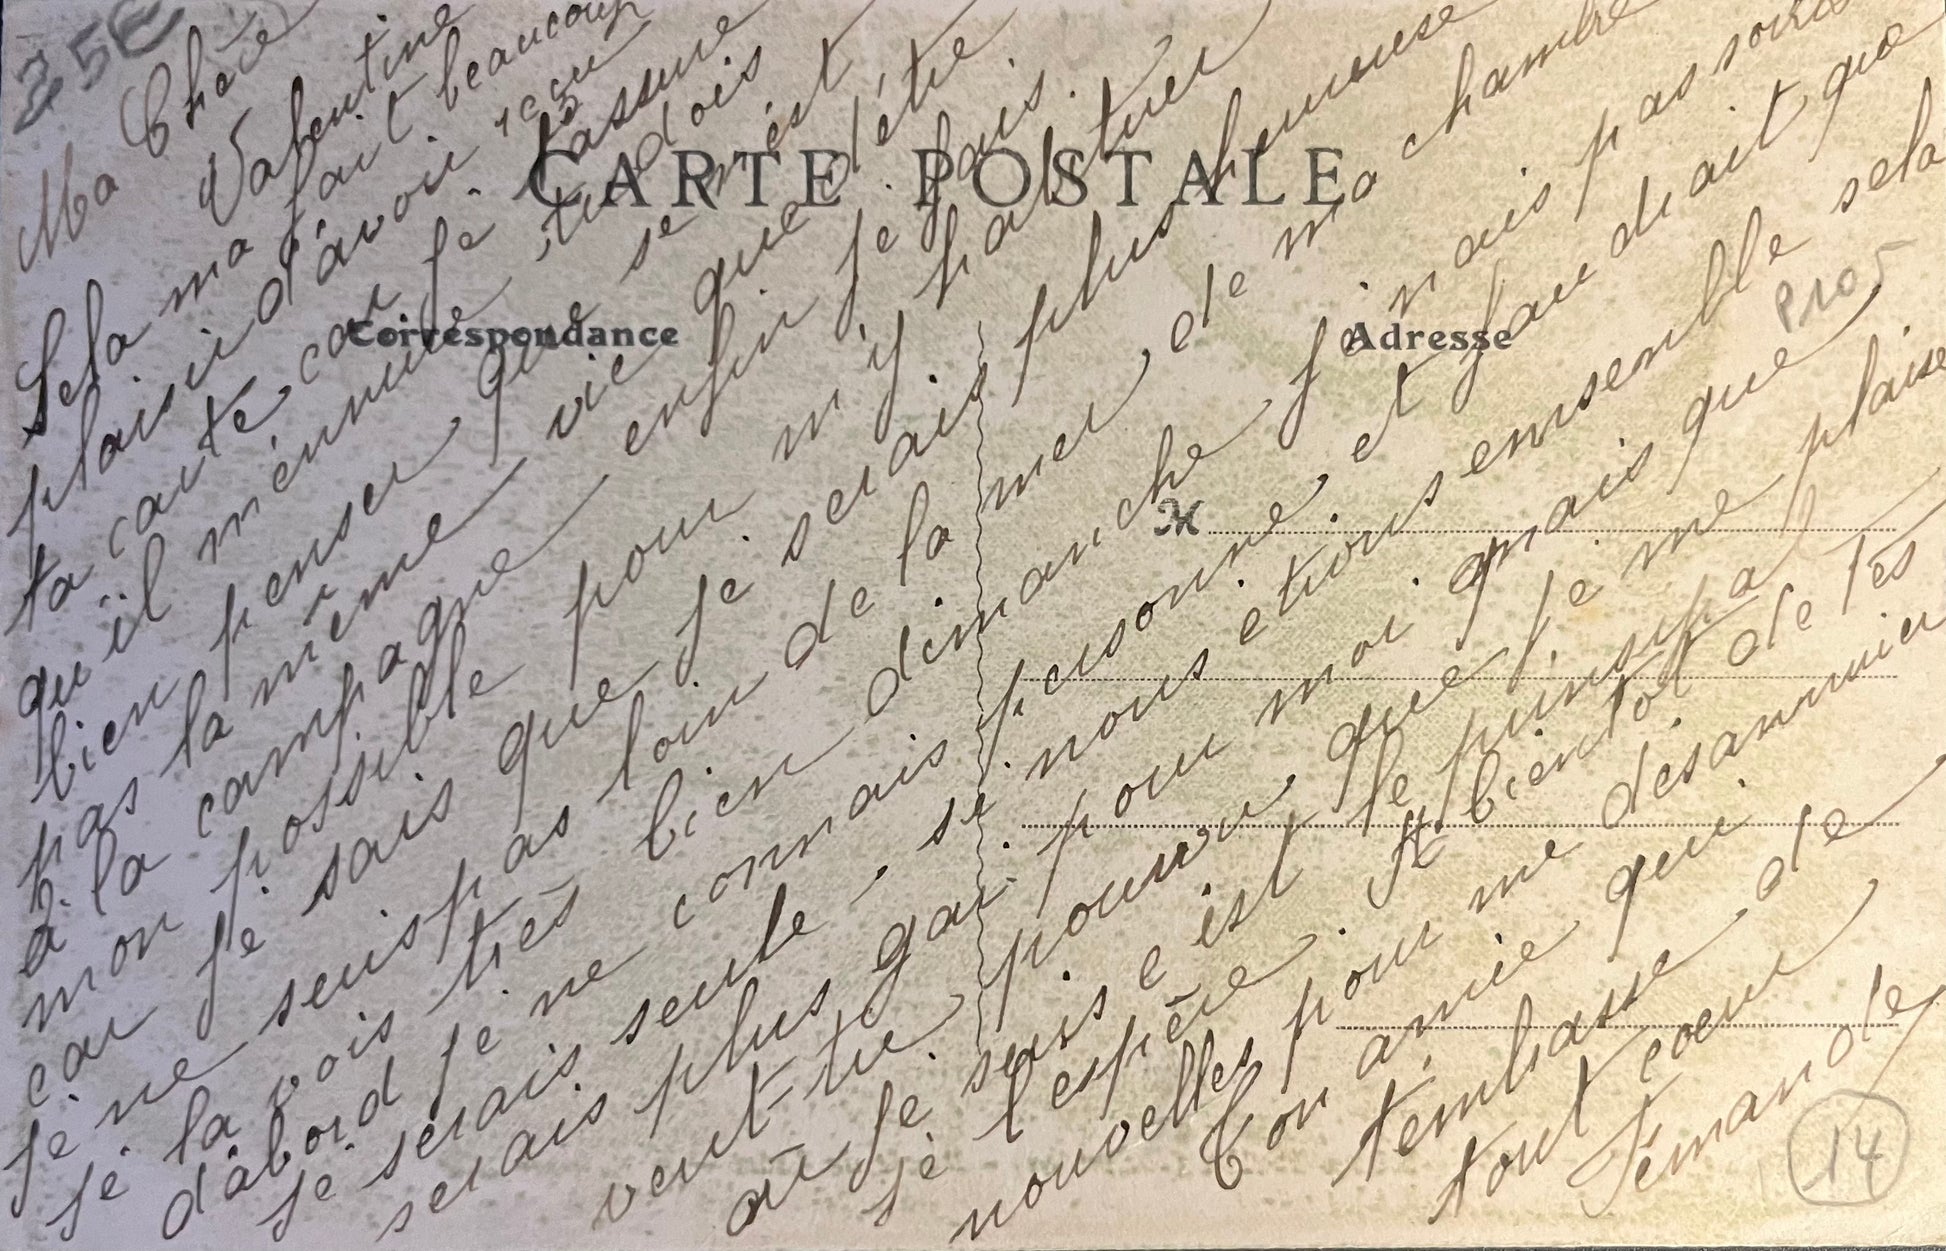 35€
Ma Chère
Valentine
Sela ma fait beaucoup
plaisir d'avoir reçu
ta carte, car je t'assure
qu'il m'énnuie, tu dois
bien penser que se n'est
pas la même vie que d'être
à la campagne enfin je fais.
mon possible pour m'y habituer
car je sais que je serais plus heureuse
je ne seuis pas loin de la mer, de ma chambre
je la vois très bien dimanche je n'ais pas sortie
d'abord je ne connais personne, et faudrait que
je serais seule, si nous etions ensemble sela
serais plus gai pour moi mais que
veut-tu pourvu que je me plaise
où je suis c'est le prinsipal
je l'espère. A bientôt de tes
nouvelles pour me désannuier
Ton amie qui
t'embrasse de
tout coeur
Fernande
CARTE POSTALE
Correspondance
Adresse
M
14